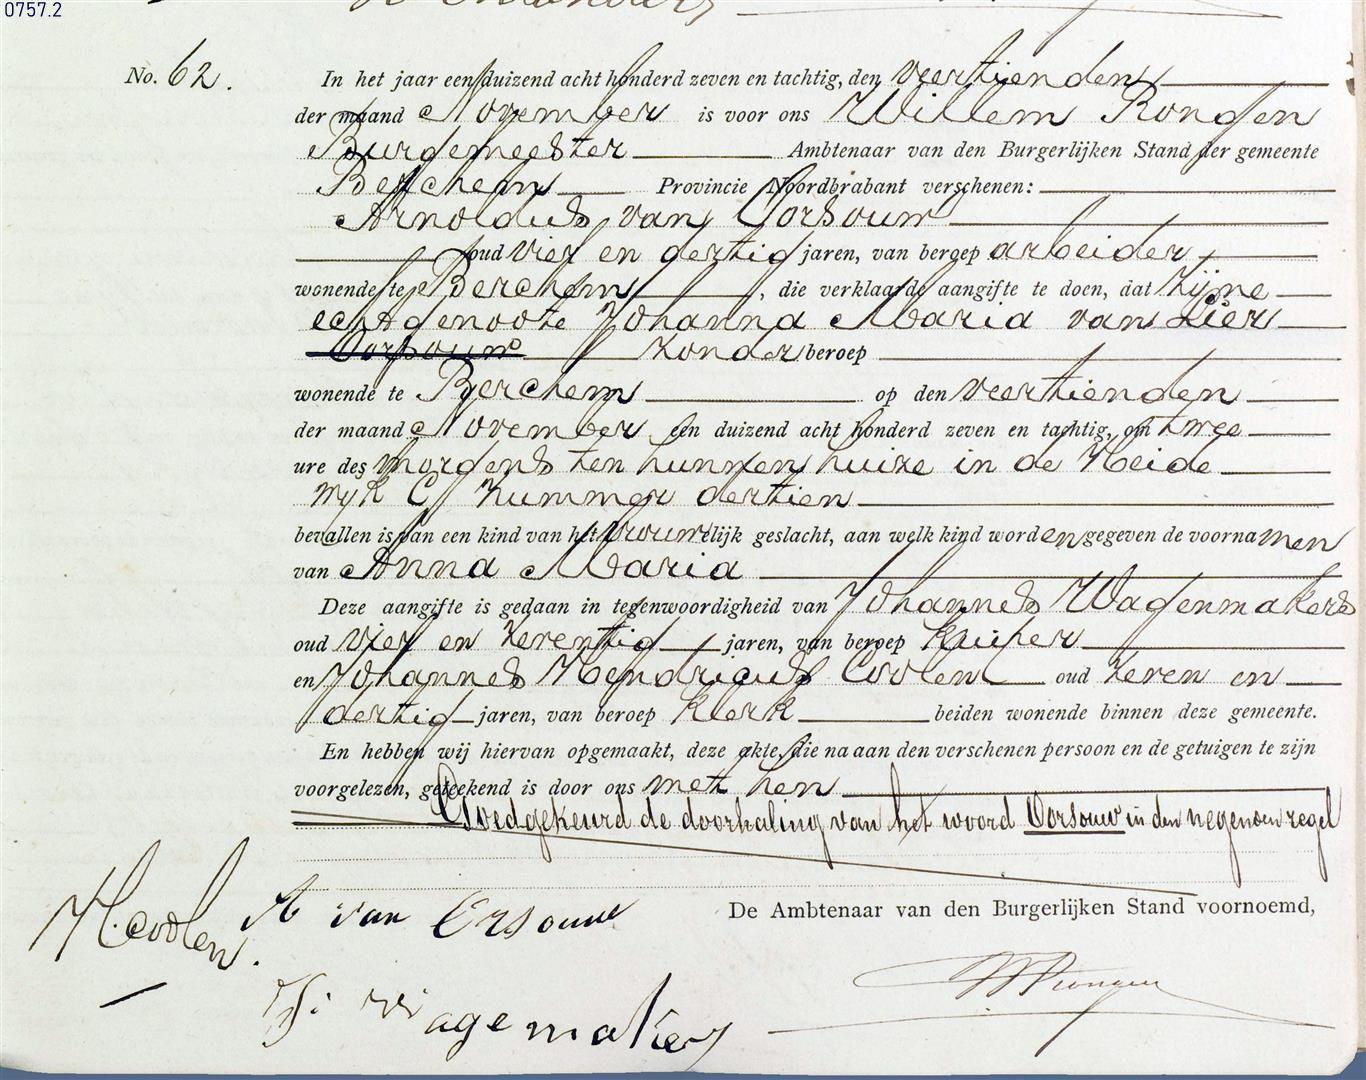 0757.2
No. 62. In het jaar een duizend acht honderd zeven en tachtig, den veertienden
der maand November is voor ons Willem Rongen
Burgemeester Ambtenaar van den Burgerlijken Stand der gemeente
Berchem Provincie Noordbrabant verschenen:
Arnoldus van Oorsouw
oud vier en dertig jaren, van beroep arbeider
wonende te Berchem, die verklaarde aangifte te doen, dat zijne
echtgenoote Johanna Maria van Lier
Oorsouw zonder beroep
wonende te Berchem op den veertienden
der maand November een duizend acht honderd zeven en tachtig, om twee
ure des morgens ten hunnen huize in de Heide
wijk C nummer dertien
bevallen is van een kind van het vrouwelijk geslacht, aan welk kind worden gegeven de voornamen
van Anna Maria
Deze aangifte is gedaan in tegenwoordigheid van Johannes Wagenmakers
oud vier en zeventig jaren, van beroep kuiper
en Johannes Hendricus Coolen oud zeven en
dertig jaren, van beroep klerk beiden wonende binnen deze gemeente.
En hebben wij hiervan opgemaakt, deze akte, die na aan den verschenen persoon en de getuigen te zijn
voorgelezen, geteekend is door ons met hen
Goedgekeurd de doorhaling van het woord Oorsouw in den negenden regel
De Ambtenaar van den Burgerlijken Stand voornoemd,
A van Ersouw
HCoolen.
wagemakers
WRongen